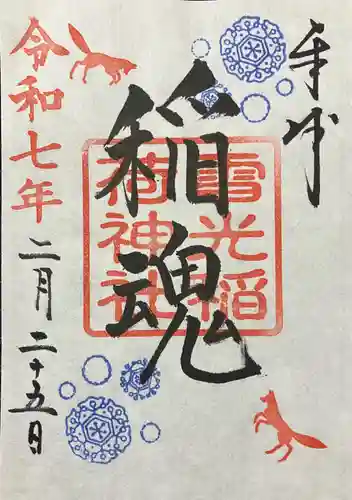 奉拝
稲魂
雪光稲荷神社
令和七年
二月二十五日